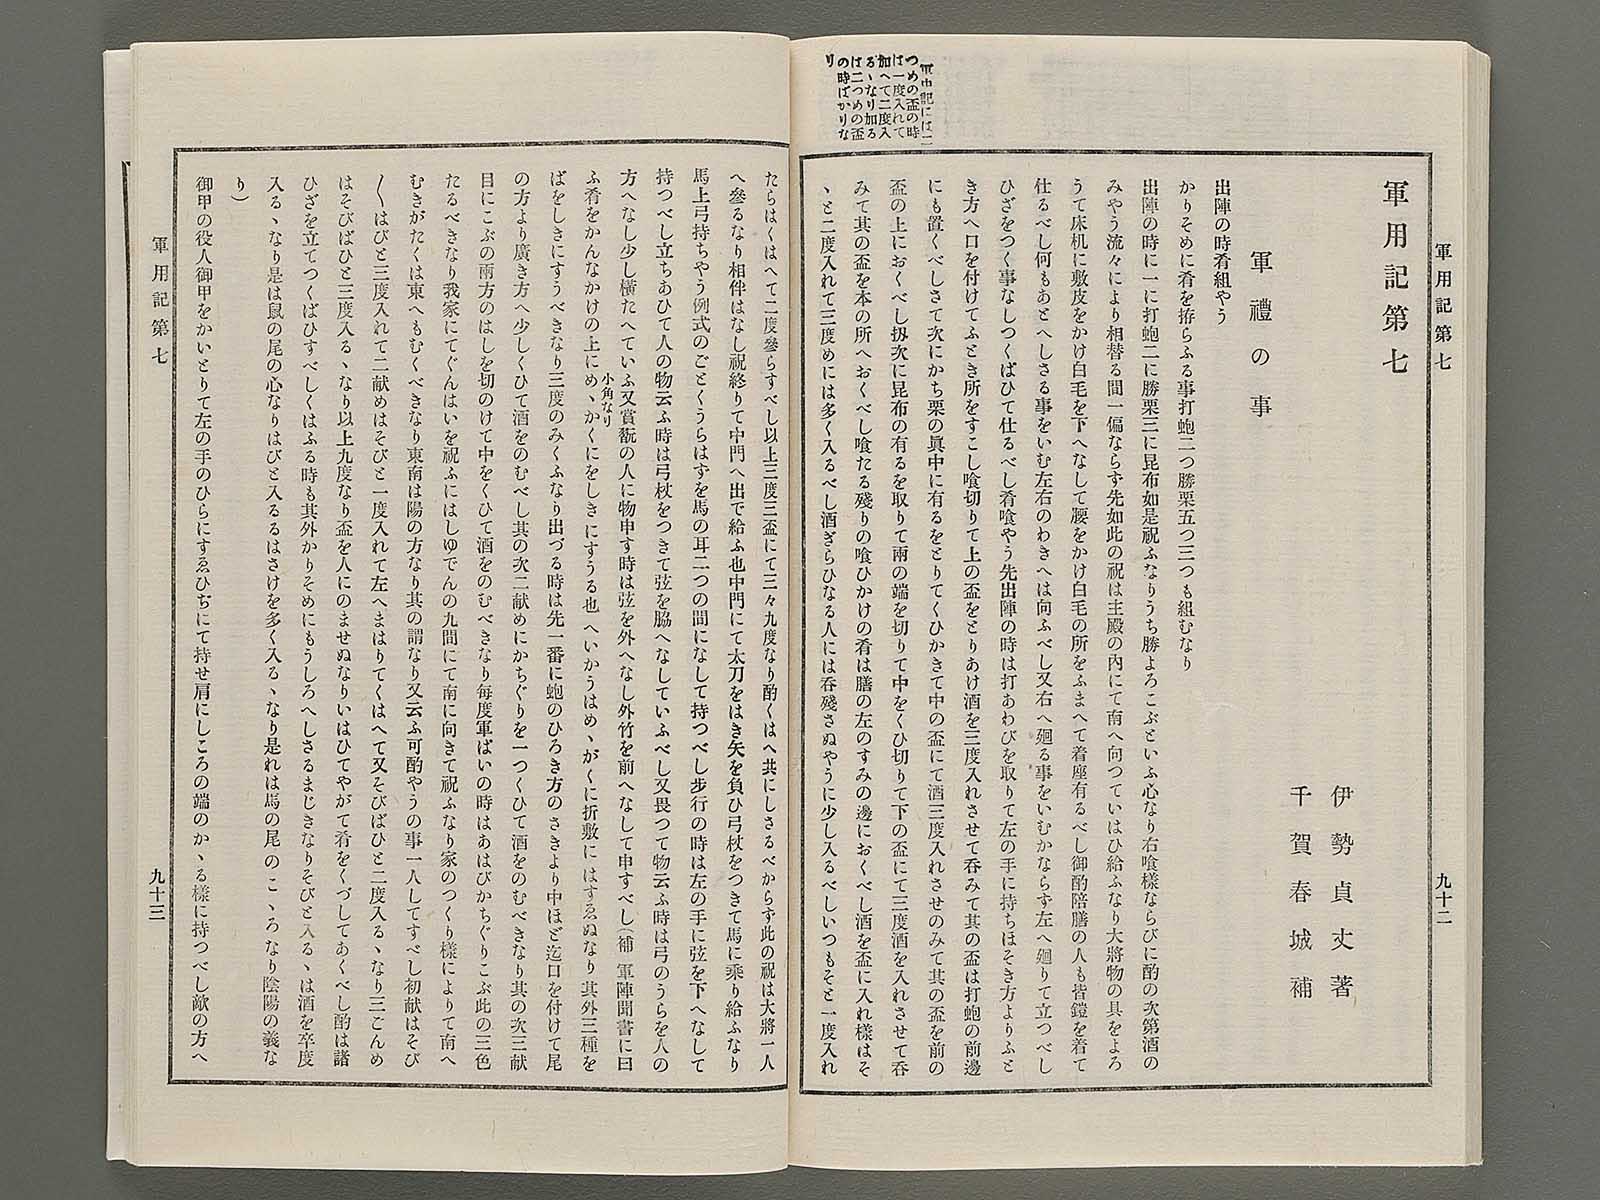 軍用記第七
九十二
軍用記第七
伊勢貞丈著
千賀春城補
軍禮の事
出陣の時肴組やう
かりそめに肴を拵らふる事打蚫二つ勝栗五つ三つも組むなり
出陣の時に一に打蚫二に勝栗三に昆布如是祝ふなりうち勝よろこぶといふ心なり右喰樣ならびに酌の次第酒の
みやう流々により相替る間一偏ならず先如此の祝は主殿の內にて南へ向つていはひ給ふなり大將物の具をよろ
うて床机に敷皮をかけ白毛を下へなして腰をかけ白毛の所をふまへて着座有るべし御酌陪膳の人も皆鎧を着て
仕るべし何もあとへしさる事をいむ左右のわきへは向ふべし又右へ廻る事をいむかならず左へ廻りて立つべし
ひざをつく事なしつくばひて仕るべし肴喰やう先出陣の時は打あわびを取りて左の手に持ちほそき方よりふと
き方へ口を付けてふとき所をすこし喰切りて上の盃をとりあけ酒を三度入れさせて呑みて其の盃は打蚫の前邊
にも置くべしさて次にかち栗の眞中に有るをとりてくひかきて中の盃にて酒三度入れさせのみて其の盃を前の
盃の上におくべし扨次に昆布の有るを取りて兩の端を切りて中をくひ切りて下の盃にて三度酒を入れさせて呑
みて其の盃を本の所へおくべし喰たる殘りの喰ひかけの肴は膳の左のすみの邊におくべし酒を盃に入れ樣はそ
ヽと二度入れて三度めには多く入るべし酒ぎらひなる人には呑殘さぬやうに少し入るべしいつもそと一度入れ
軍中記には二
つめの盃の時
は一度入れて
加へて二度入
るヽなり加る
は二つめの盃
の時ばかりな
り
たらはくはへて二度參らすべし以上三度三盃にて三々九度なり酌くはへ共にしさるべからず此の祝は大將一人
へ參るなり相伴はなし祝終りて中門へ出で給ふ也中門にて太刀をはき矢を負ひ弓杖をつきて馬に乘り給ふなり
馬上弓持ちやう例式のごとくうらはずを馬の耳二つの間になして持つべし步行の時は左の手に弦を下へなして
持つべし立ちあひて人の物云ふ時は弓杖をつきて弦を脇へなしていふべし又畏つて物云ふ時は弓のうらを人の
方へなし少し橫たへていふ又賞翫の人に物申す時は弦を外へなし外竹を前へなして申すべし(補 軍陣聞書に曰
小角なり
ふ肴をかんなかけの上にめヽかくにをしきにすうる也 へいかうはめヽがくに折敷にはすゑぬなり其外三種を
ばをしきにすうべきなり三度のみくふなり出づる時は先一番に蚫のひろき方のさきより中ほど迄口を付けて尾
の方より廣き方へ少しくひて酒をのむべし其の次二献めにかちぐりを一つくひて酒をのむべきなり其の次三献
目にこぶの兩方のはしを切のけて中をくひて酒をのむべきなり每度軍ばいの時はあはびかちぐりこぶ此の三色
たるべきなり我家にてぐんはいを祝ふにはしゆでんの九間にて南に向きて祝ふなり家のつくり樣によりて南へ
むきがたくは東へもむくべきなり東南は陽の方なり其の謂なり又云ふ可酌やうの事一人してすべし初献はそび
〳〵はびと三度入れて二献めはそびと一度入れて左へまはりてくはへて又そびばひと二度入るヽなり三こんめ
はそびばひと三度入るヽなり以上九度なり盃を人にのませぬなりいはひてやがて肴をくづしてあくべし酌は諸
ひざを立てつくばひすべしくはふる時も其外かりそめにもうしろへしさるまじきなりそびと入るヽは酒を卒度
入るヽなり是は鼠の尾の心なりはびと入るるはさけを多く入るヽなり是れは馬の尾のこヽろなり陰陽の義な
り)
御甲の役人御甲をかいとりて左の手のひらにすゑひぢにて持せ肩にしころの端のかヽる樣に持つべし敵の方へ
軍用記第七
九十三